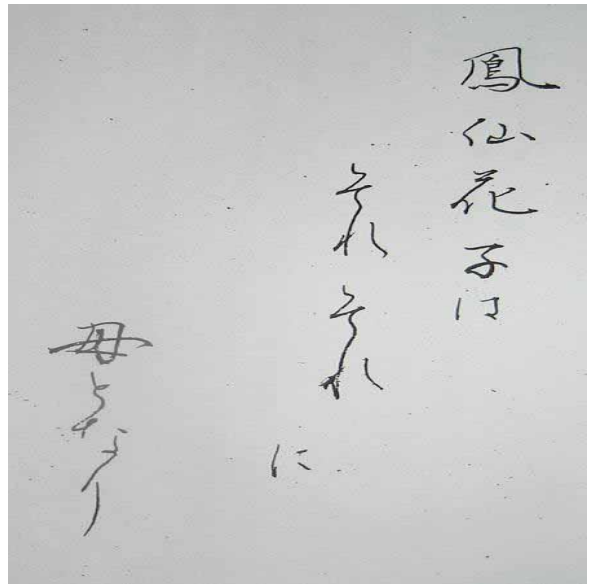 鳳仙花子は
それそれ
に
母となり